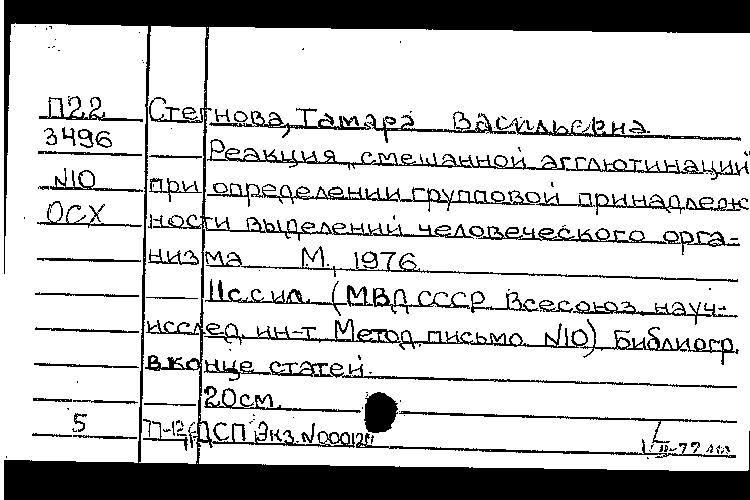 П22 Стегнова, Тамара Васильевна
3496 Реакция смешанной агглютинаций
N10 при определении групповой принадлеж
ОСХ ности выделений человеческого орга-
низма М., 1976
11с.с ил. (МВД СССР Всесоюз. науч-
исслед. ин-т. Метод. письмо N10) Библиогр.
в конце статей.
20см.
5 ДСП Экз. N